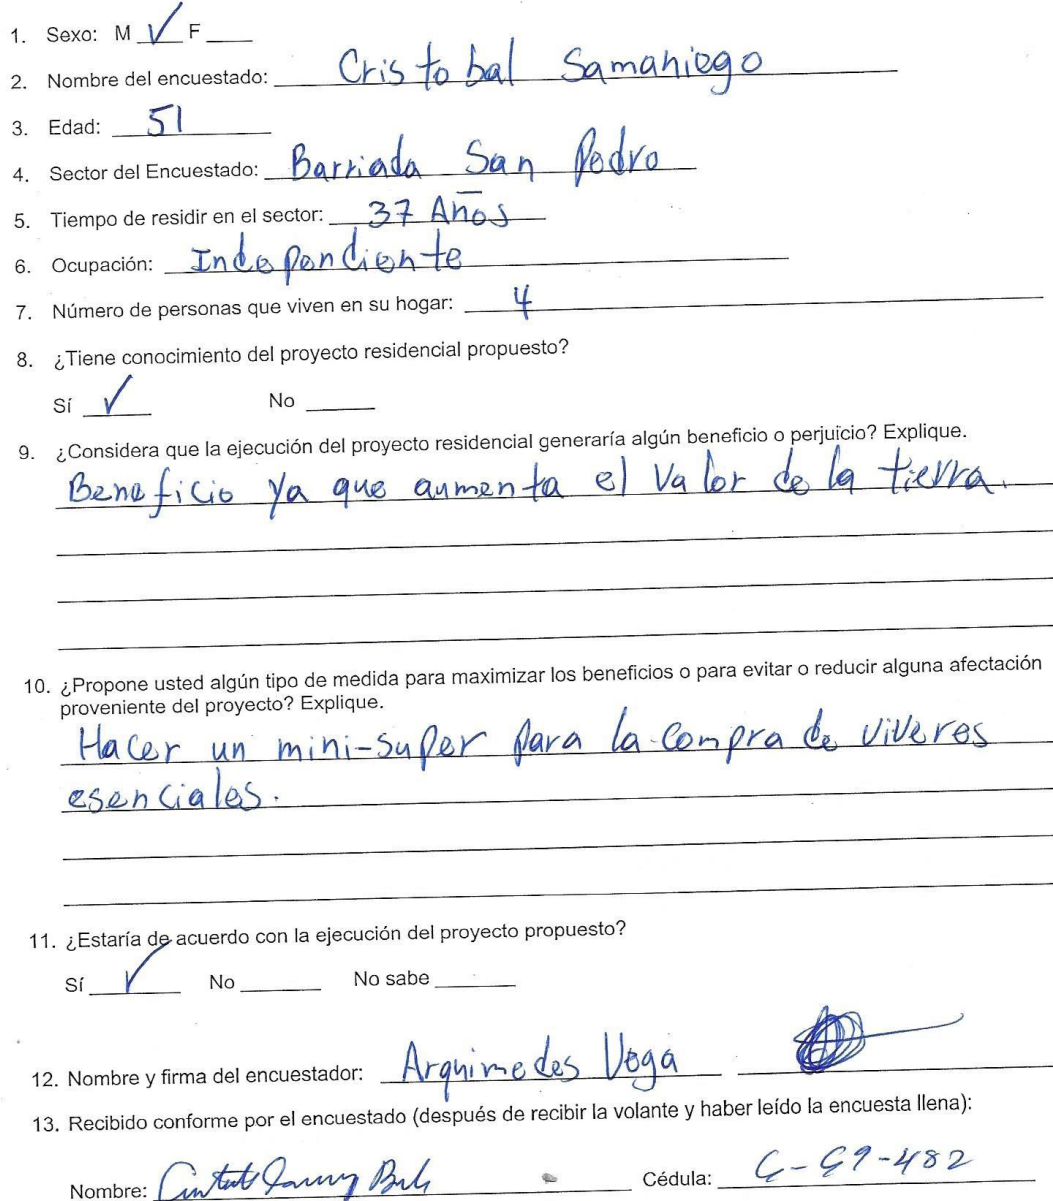 1. Sexo: M ✓ F ____
2. Nombre del encuestado: Cristobal Samaniego
3. Edad: 51
4. Sector del Encuestado: Barriada San Pedro
5. Tiempo de residir en el sector: 37 Años
6. Ocupación: Independiente
7. Número de personas que viven en su hogar: 4
8. ¿Tiene conocimiento del proyecto residencial propuesto?
Sí ✓ No ____
9. ¿Considera que la ejecución del proyecto residencial generaría algún beneficio o perjuicio? Explique.
Beneficio ya que aumenta el valor de la tierra.
10. ¿Propone usted algún tipo de medida para maximizar los beneficios o para evitar o reducir alguna afectación
proveniente del proyecto? Explique.
Hacer un mini-super para la compra de viveres
esenciales.
11. ¿Estaría de acuerdo con la ejecución del proyecto propuesto?
Sí ✓ No ____ No sabe ____
12. Nombre y firma del encuestador: Arquimedes Vega
13. Recibido conforme por el encuestado (después de recibir la volante y haber leído la encuesta llena):
Nombre: Cédula: